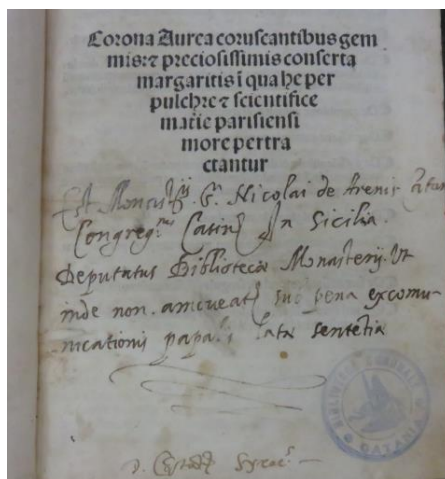 Corona Aurea coruscantibus gem
mis: ⁊ preciosissimis conserta
margaritis ĩ qua he per
pulchre ⁊ scientifice
matie parisiensi
more pertra
ctantur
Est Monast S. Nicolai de Arenis
Congreg. Casin In Sicilia.
Deputatus Bibliotecæ Monasterij. Ut
inde non amoveat sub pena excomu-
nicationis papali lata sententia
BIBLIOTECA COMUNALE
CATANIA